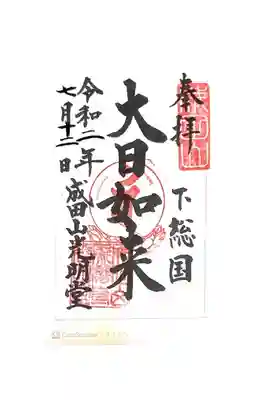 奉拝
下総国
大日如来
令和二年
七月十二日 成田山光明堂